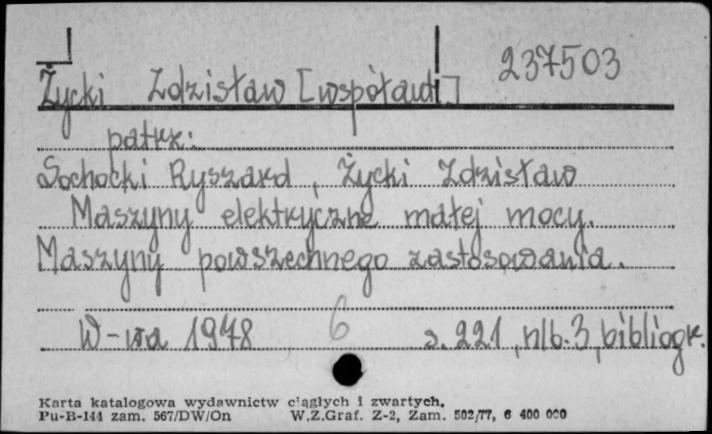 237503
Życki Zdzisław [współaut.]
patrz:
Sochocki Ryszard, Życki Zdzisław
Maszyny elektryczne małej mocy.
Maszyny powszechnego zastosowania.
W-wa 1978 6 s. 221, nlb. 3, bibliogr.
Karta katalogowa wydawnictw ciągłych i zwartych.
Pu-B-141 zam. 567/DW/On W.Z.Graf. Z-2, Zam. 502/77, 6 400 000